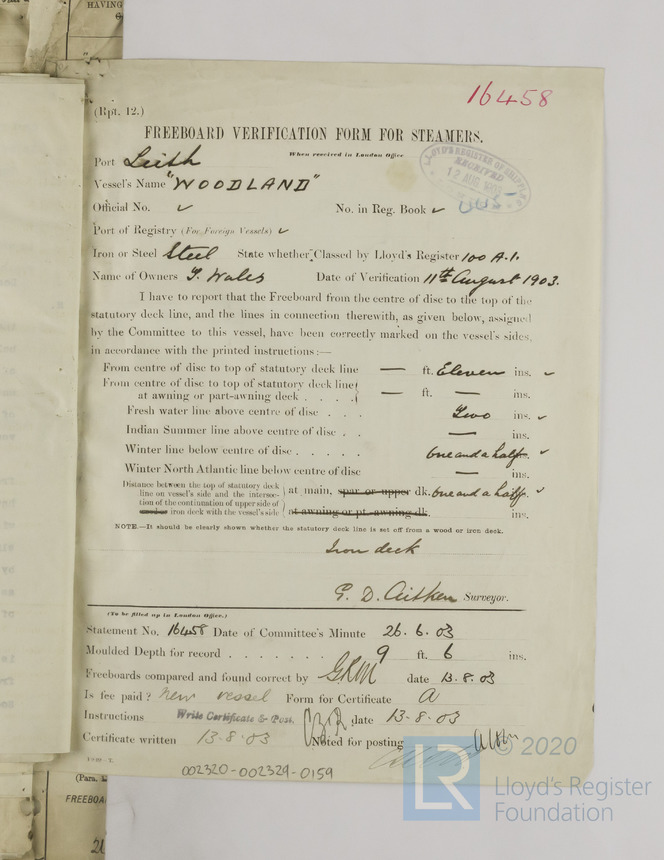 HAVING
16458
(Rpt. 12.)
FREEBOARD VERIFICATION FORM FOR STEAMERS.
When received in London Office
Port Leith
LLOYD'S REGISTER OF SHIPPING
RECEIVED
12 AUG 1903
Vessel's Name "WOODLAND"
Official No. ✓ No. in Reg. Book ✓
Port of Registry (For Foreign Vessels) ✓
Iron or Steel Steel State whether Classed by Lloyd's Register 100 A.1.
Name of Owners T. Wales Date of Verification 11th August 1903.
I have to report that the Freeboard from the centre of disc to the top of the
statutory deck line, and the lines in connection therewith, as given below, assigned
by the Committee to this vessel, have been correctly marked on the vessel's sides,
in accordance with the printed instructions:—
From centre of disc to top of statutory deck line — ft. Eleven ins. ✓
From centre of disc to top of statutory deck line
at awning or part-awning deck . . . . — ft. — ins.
Fresh water line above centre of disc . . . Two ins. ✓
Indian Summer line above centre of disc . . — ins.
Winter line below centre of disc . . . . . one and a half. ✓
Winter North Atlantic line below centre of disc — ins.
Distance between the top of statutory deck
line on vessel's side and the intersec-
tion of the continuation of upper side of
iron deck with the vessel's side
at main, spar or upper dk. one and a half. ✓
at awning or pt.-awning dk. ins.
NOTE.—It should be clearly shown whether the statutory deck line is set off from a wood or iron deck.
Iron deck
G. D. Aitken Surveyor.
(To be filled up in London Office.)
Statement No. 16458 Date of Committee's Minute 26.6.03
Moulded Depth for record . . . . . . . 9 ft. 6 ins.
Freeboards compared and found correct by GRM date 13.8.03
Is fee paid? New vessel Form for Certificate A
Instructions Write Certificate & Post. date 13.8.03
Certificate written 13.8.03 Noted for posting
002320-002329-0159
© 2020
LR Lloyd's Register
Foundation
(Para.
FREEBOA